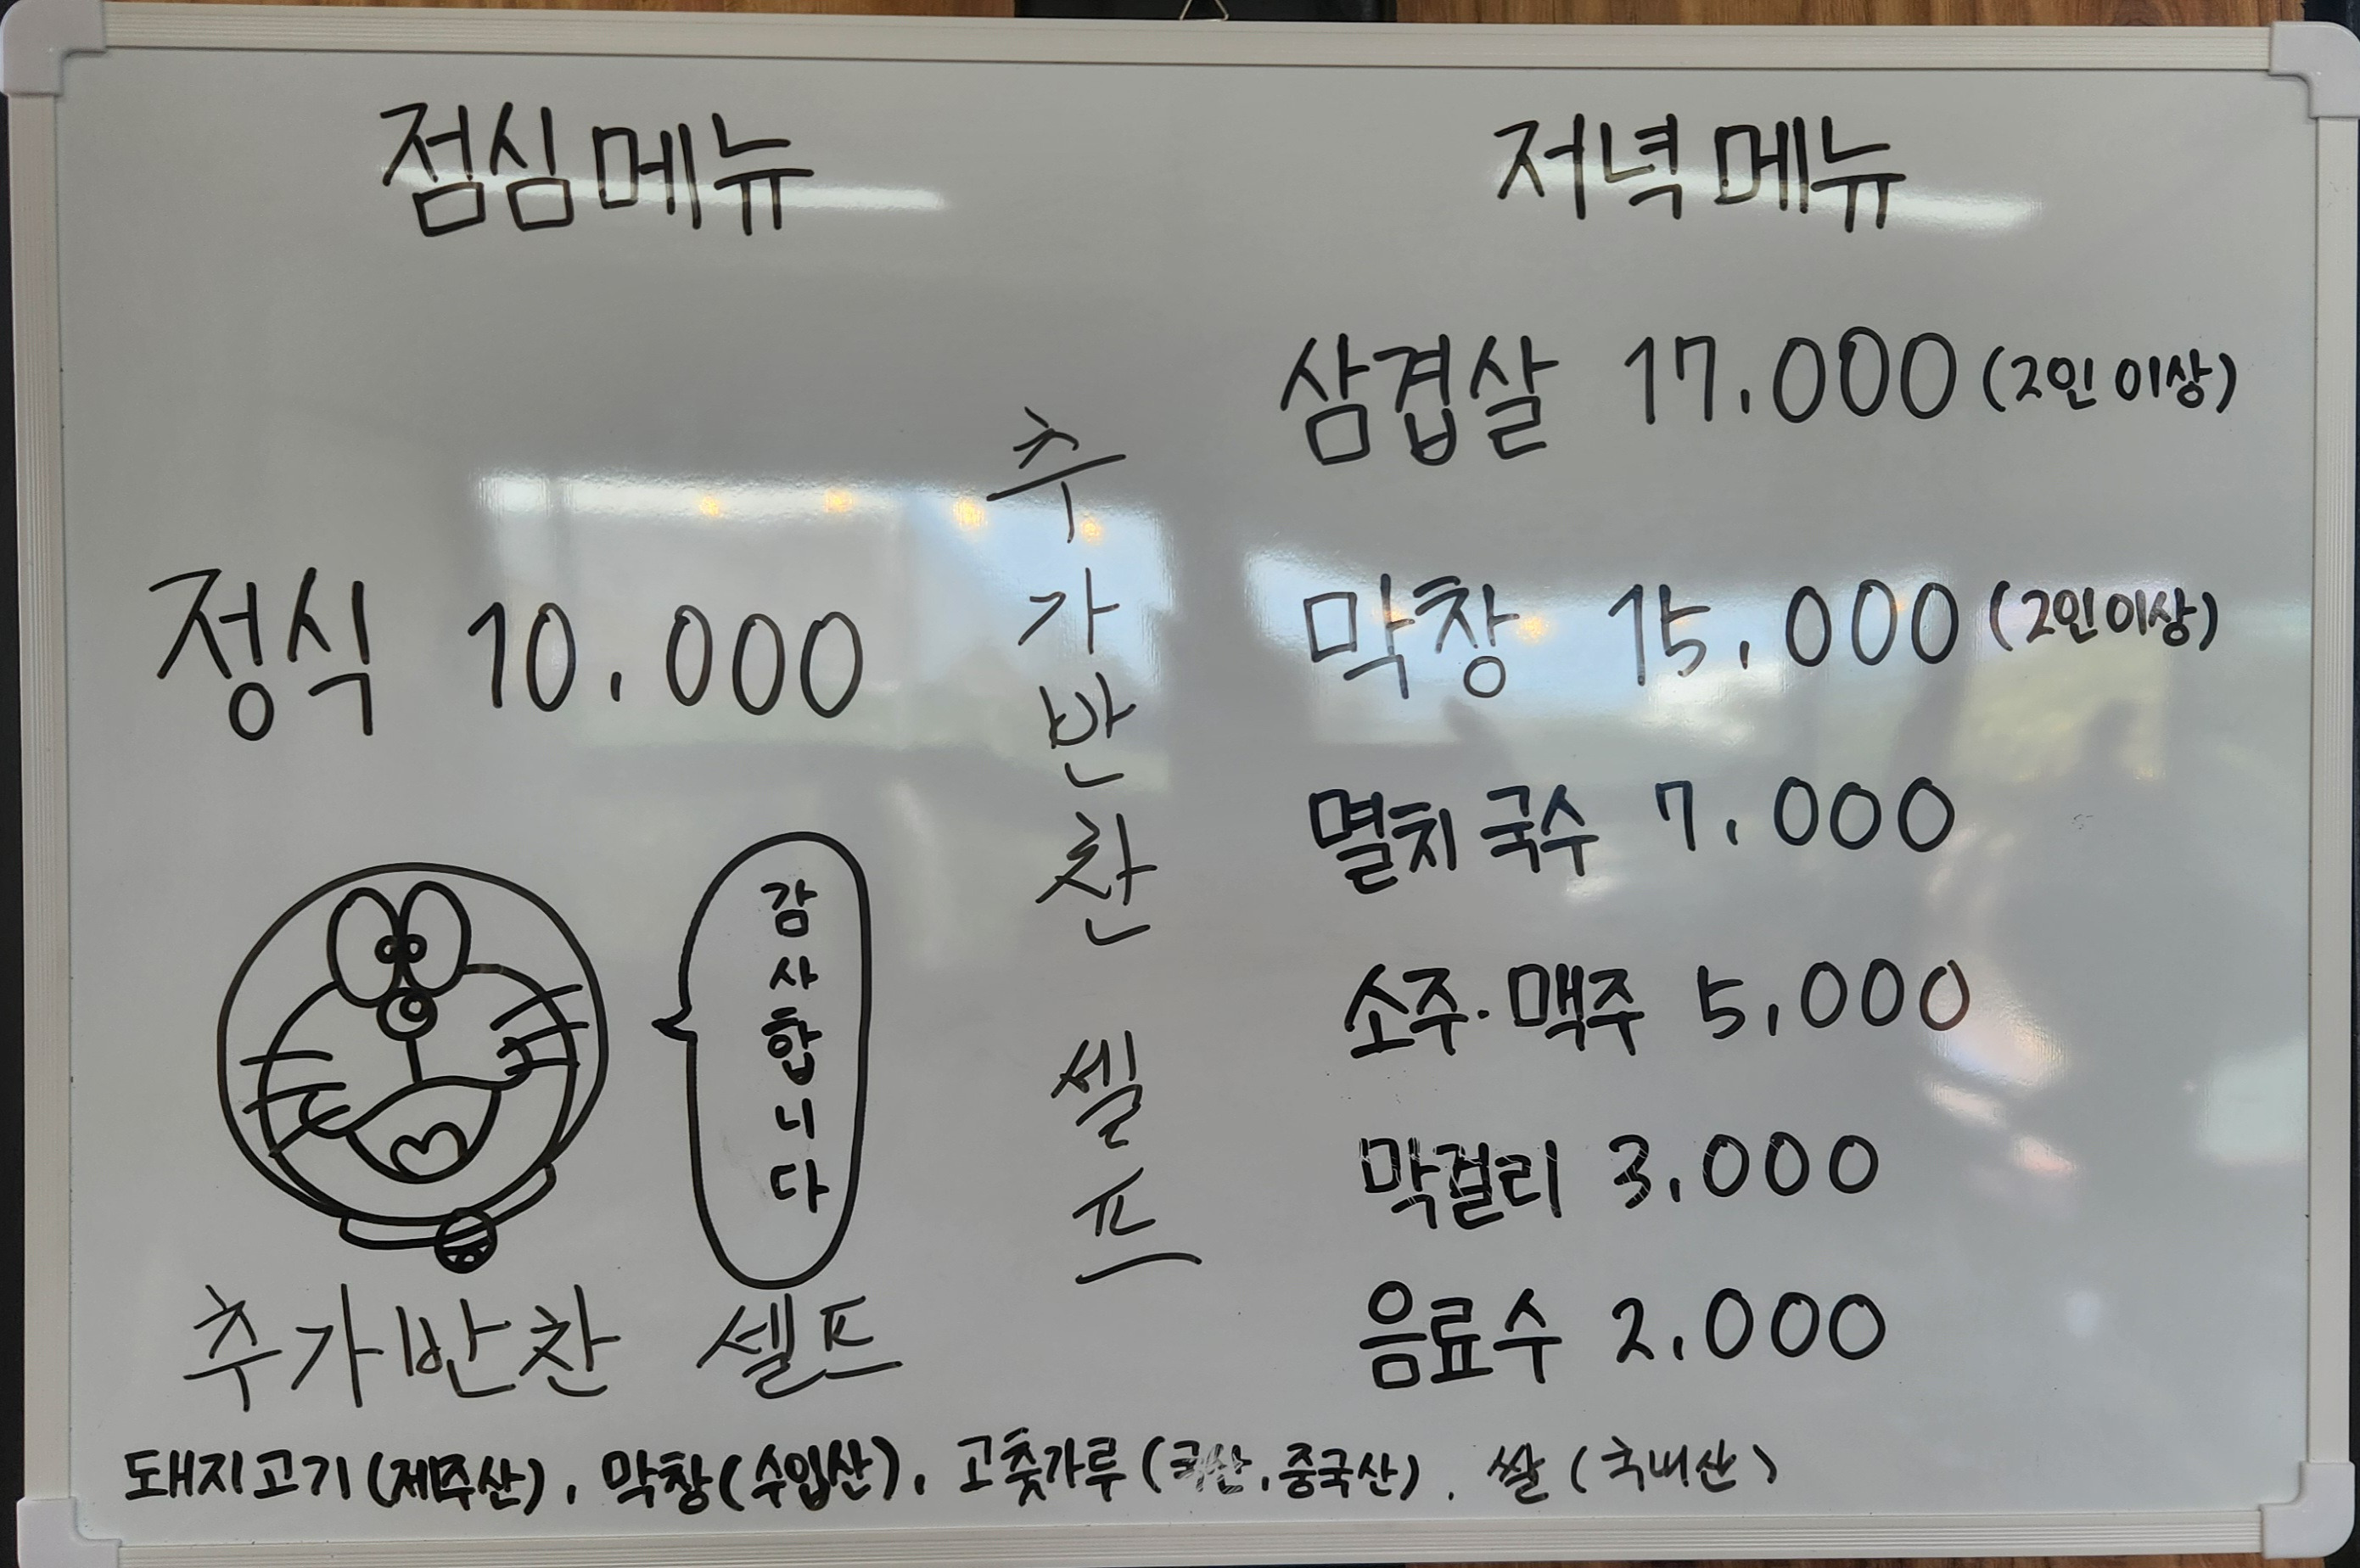 점심메뉴
정식 10.000
감사합니다
추가반찬 셀프
추가반찬 셀프
저녁메뉴
삼겹살 17.000 (2인 이상)
막창 15.000 (2인이상)
멸치국수 7.000
소주·맥주 5,000
막걸리 3.000
음료수 2.000
돼지고기(제주산), 막창(수입산), 고춧가루(국산,중국산). 쌀(국내산)